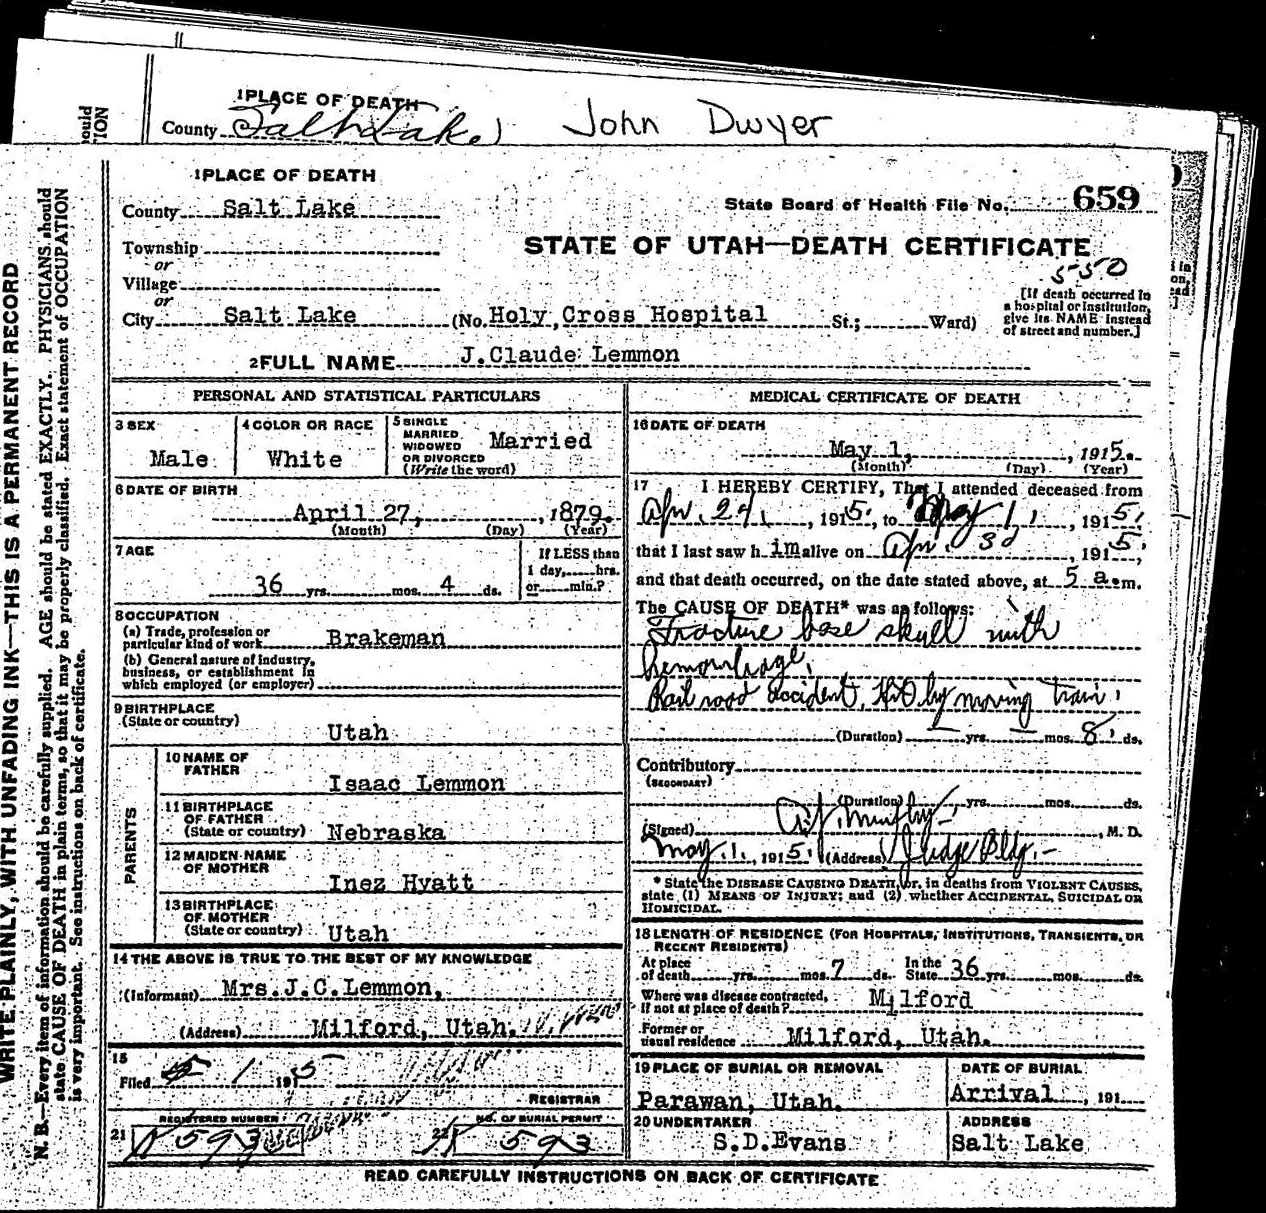 1 PLACE OF DEATH
County Salt Lake John Dwyer
ould
TION
WRITE PLAINLY, WITH UNFADING INK—THIS IS A PERMANENT RECORD
N. B.—Every item of information should be carefully supplied. AGE should be stated EXACTLY. PHYSICIANS should
state CAUSE OF DEATH in plain terms, so that it may be properly classified. Exact statement of OCCUPATION
is very important. See instructions on back of certificate.
1 PLACE OF DEATH
County Salt Lake
State Board of Health File No. 659
Township
or
STATE OF UTAH—DEATH CERTIFICATE
550
Village
or
City Salt Lake (No. Holy Cross Hospital St.; Ward)
[If death occurred in
a hospital or institution,
give its NAME instead
of street and number.]
2 FULL NAME J.Claude Lemmon
PERSONAL AND STATISTICAL PARTICULARS
3 SEX
Male
4 COLOR OR RACE
White
5 SINGLE
MARRIED
WIDOWED
OR DIVORCED
(Write the word)
Married
6 DATE OF BIRTH
April 27, 1879.
(Month) (Day) (Year)
7 AGE
36 yrs. mos. 4 ds.
If LESS than
1 day, hrs.
or min.?
8 OCCUPATION
(a) Trade, profession or
particular kind of work Brakeman
(b) General nature of industry,
business, or establishment in
which employed (or employer)
9 BIRTHPLACE
(State or country)
Utah
PARENTS
10 NAME OF
FATHER
Isaac Lemmon
11 BIRTHPLACE
OF FATHER
(State or country) Nebraska
12 MAIDEN NAME
OF MOTHER
Inez Hyatt
13 BIRTHPLACE
OF MOTHER
(State or country) Utah
14 THE ABOVE IS TRUE TO THE BEST OF MY KNOWLEDGE
(Informant) Mrs.J.C.Lemmon,
(Address) Milford, Utah.
15
Filed 5 1 1915
REGISTRAR
REGISTERED NUMBER
21 593
NO. OF BURIAL PERMIT
22 593
MEDICAL CERTIFICATE OF DEATH
16 DATE OF DEATH
May 1, 1915.
(Month) (Day) (Year)
17 I HEREBY CERTIFY, That I attended deceased from
Apr. 24, 1915, to May 1, 1915,
that I last saw him alive on Apr. 30, 1915,
and that death occurred, on the date stated above, at 5 a.m.
The CAUSE OF DEATH* was as follows:
Fracture base skull with
hemorrhage.
Rail road accident. Hit by moving train.
(Duration) — yrs. — mos. 8 ds.
Contributory
(SECONDARY)
(Duration) yrs. mos. ds.
(Signed) Murphy, M. D.
May 1, 1915 (Address) Judge Bldg.
* State the DISEASE CAUSING DEATH, or, in deaths from VIOLENT CAUSES,
state (1) MEANS OF INJURY; and (2) whether ACCIDENTAL, SUICIDAL OR
HOMICIDAL.
18 LENGTH OF RESIDENCE (FOR HOSPITALS, INSTITUTIONS, TRANSIENTS, OR
RECENT RESIDENTS)
At place
of death yrs. mos. 7 ds. In the
State 36 yrs. mos. ds.
Where was disease contracted,
if not at place of death? Milford
Former or
usual residence Milford, Utah.
19 PLACE OF BURIAL OR REMOVAL
Parawan, Utah.
DATE OF BURIAL
Arrival, 191
20 UNDERTAKER
S.D.Evans
ADDRESS
Salt Lake
READ CAREFULLY INSTRUCTIONS ON BACK OF CERTIFICATE